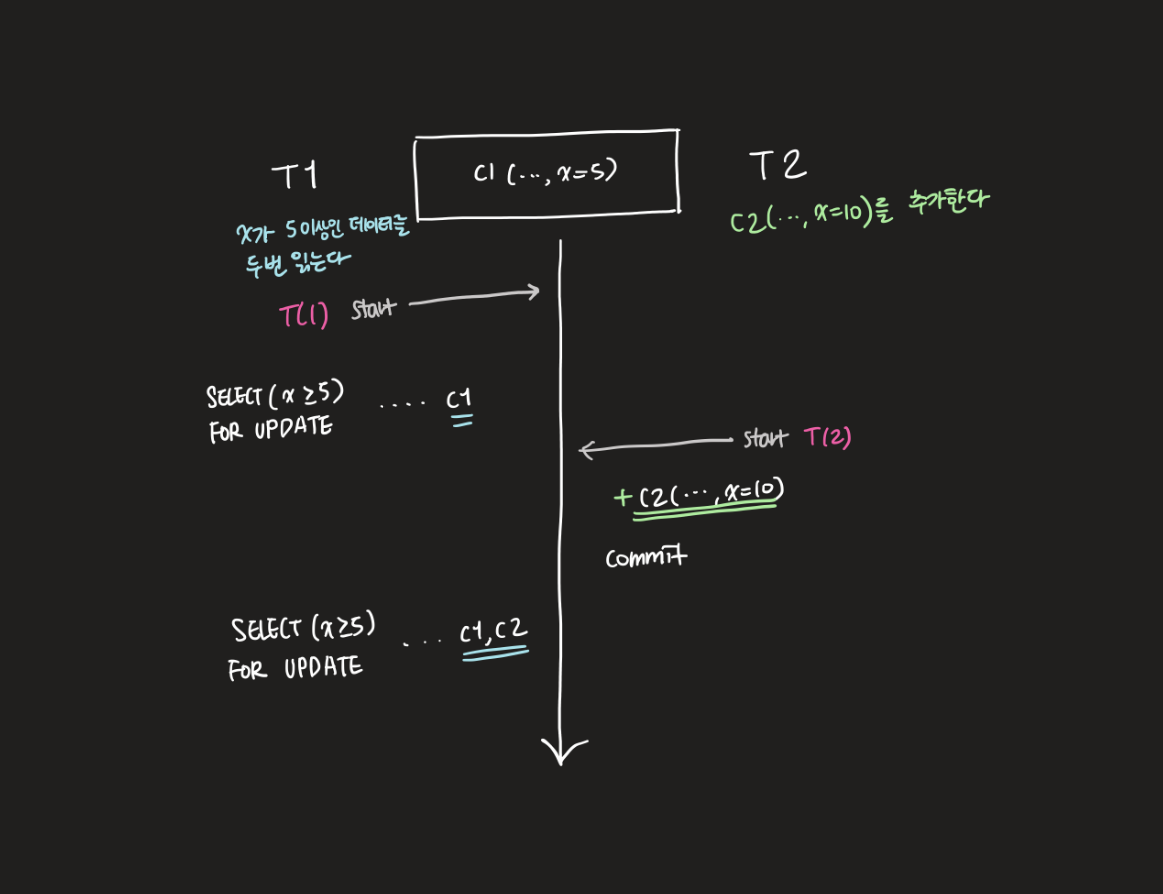 T1
C1 (..., x=5)
T2
x가 5이상인 데이터를
두번 읽는다
C2(..., x=10)를 추가한다
T(1) start
SELECT (x ≥5) .... C1
FOR UPDATE
start T(2)
+ C2(..., x=10)
commit
SELECT (x≥5) ... C1, C2
FOR UPDATE